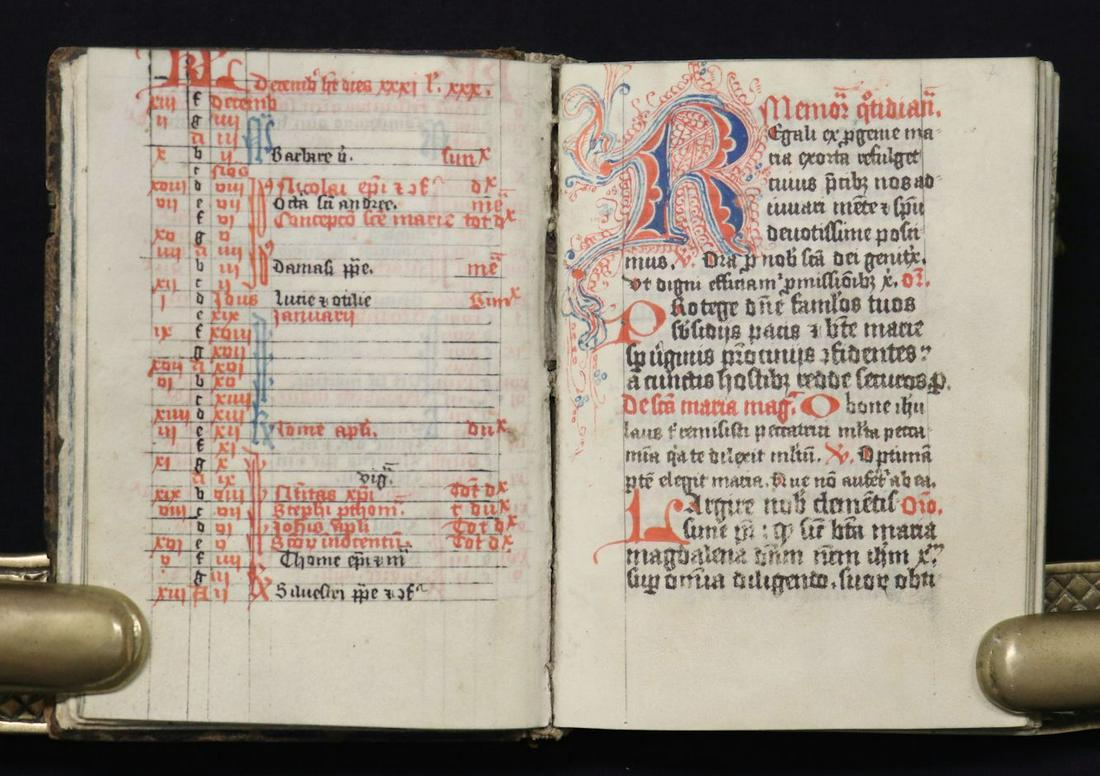 KL Decemb' ht dies xxxi l'. xxx.
xiii f decemb
ii g iiii
a iii
x b ii Barbare v. sun x
c Nos
xviii d viii Nicolai epi et 9f. d x
vii e vii Octa sci andree. me
f vi Concepco sce marie tot d x
xv g v
iiii a iiii
b iii Damasi ppe. me
xii c ii
i d Idus Lucie et otilie
e xix Januarii
ix f xviii
g xvii
xvii a xvi
vi b xv
c xiiii
xiiii d xiii
iii e xii Tome apli. du x
f xi
xi g x
a ix vig.
xix b viii Nativitas xpi Tot d x
viii c vii Stephi pthom. t du x
d vi Johis apli Tot d x
xvi e v Scor innocentii. Tot d x
v f iiii Thome epi et m
g iii
xiii A ii Silvestri ppe et 9f
Memor qtidian.
Regali ex pgenie ma-
ria exorta refulget
cuius pcibz nos ad-
iuuari mete et spu
deuotissime posci
mus. V. Ora p nob sca dei genitx.
Vt digni efficiam pmissioibz x. or.
Protege dne famlos tuos
sbsidijs pacis et bte marie
sp uginis prociniis 9fidentes
a cunctis hostibz redde securos. p.
De sca maria mag. O bone ihu
laus qui remisisti peccatrici mlta pecca
mia qa te dilexit mltu. V. Optima
pte elegit maria. Que no aufet ab ea.
Largire nob clemetis Oro.
sime pr : q sic bta maria
magdalena dnm nrm ihm x
sup omia diligendo. suor obti